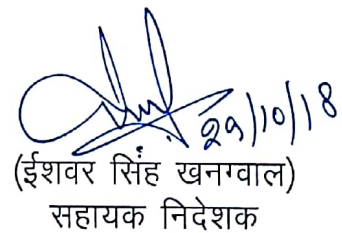 29/10/18
(ईशवर सिंह खनग्वाल)
सहायक निदेशक